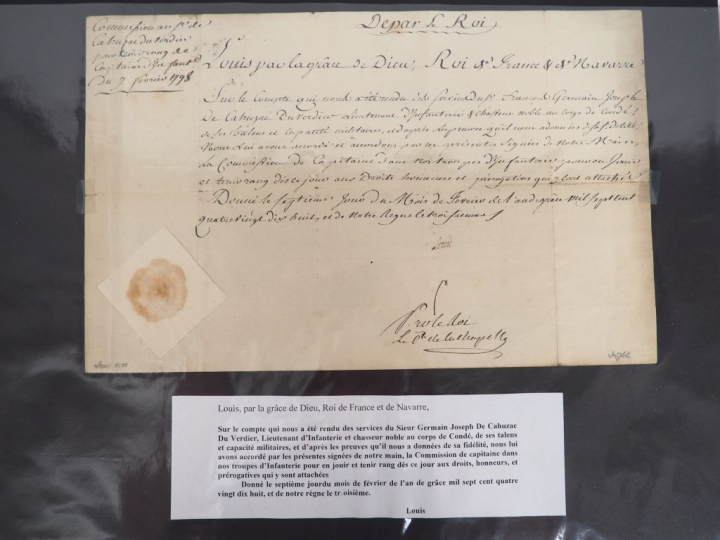 De par le Roi
Commission au Sr. de
Cahuzac Du verdier
pour tenir rang de
Capitaine d'Infanterie
Du 7 février 1798
Louis par la grâce de Dieu, Roi de France & de Navarre
Sur le Compte qui nous a été rendu des services du Sr. Germain Joseph
De Cahuzac Du Verdier Lieutenant d'Infanterie & chasseur noble au corps de Condé,
de ses talens et capacité militaires, et d'après les preuves qu'il nous a données de sa fidélité
Nous Lui avons accordé et accordons par ces présentes signées de Notre Main,
La Commission de Capitaine dans nos troupes d'Infanterie pour en Jouir
et tenir rang dès ce jour aux Droits honneurs et prérogatives qui y sont attachés
Donné le septième Jour du Mois de Février de l'an de grâce Mil sept cent
quatre vingt dix huit, et de notre Regne le troisieme
Louis
Par le Roi
Le Cte de la Chapelle
Louis, par la grâce de Dieu, Roi de France et de Navarre,
Sur le compte qui nous a été rendu des services du Sieur Germain Joseph De Cahuzac
Du Verdier, Lieutenant d'Infanterie et chasseur noble au corps de Condé, de ses talens
et capacité militaires, et d'après les preuves qu'il nous a données de sa fidélité, nous lui
avons accordé par les présentes signées de notre main, la Commission de capitaine dans
nos troupes d'Infanterie pour en jouir et tenir rang dès ce jour aux droits, honneurs, et
prérogatives qui y sont attachées
Donné le septième jourdu mois de février de l'an de grâce mil sept cent quatre
vingt dix huit, et de notre règne le troisième.
Louis